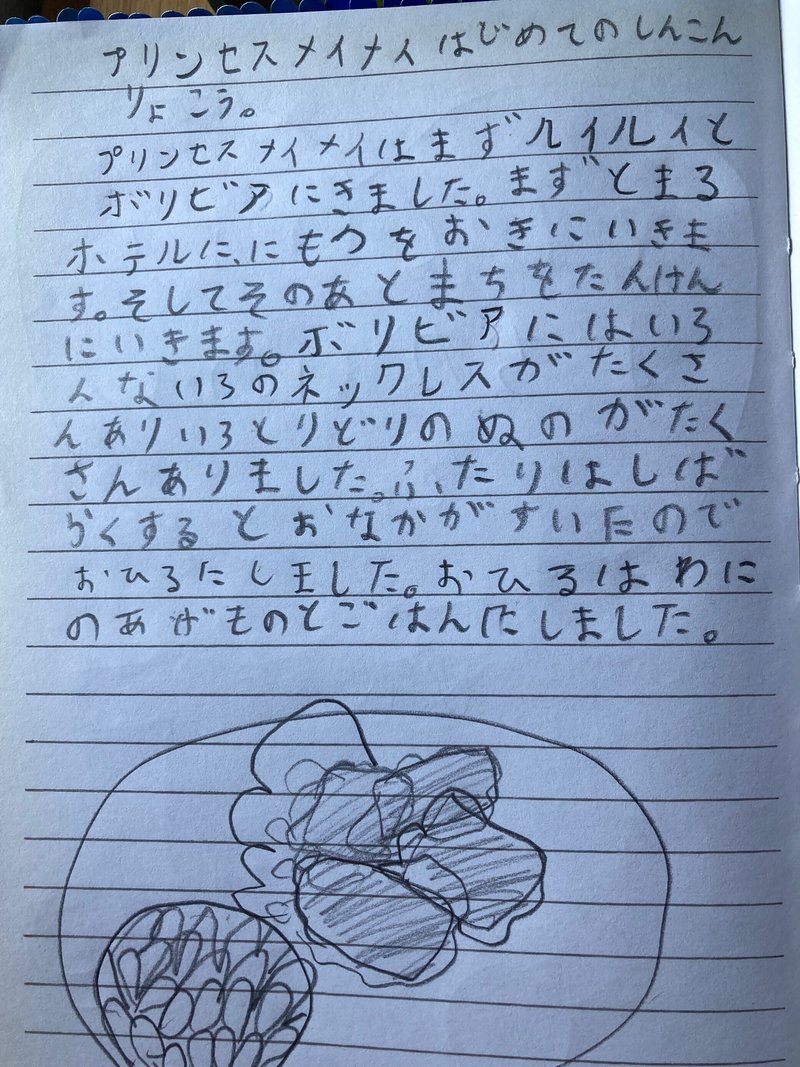 プリンセスメイメイはじめてのしんこん
りょこう。
プリンセスメイメイはまずルイルイと
ボリビアにきました。まずとまる
ホテルに、にもつをおきにいきま
す。そしてそのあとまちをたんけん
にいきます。ボリビアにはいろ
んないろのネックレスがたくさ
んありいろとりどりのぬのがたく
さんありました。ふたりはしば
らくするとおなかがすいたので
おひるにしました。おひるはわに
のあげものとごはんにしました。